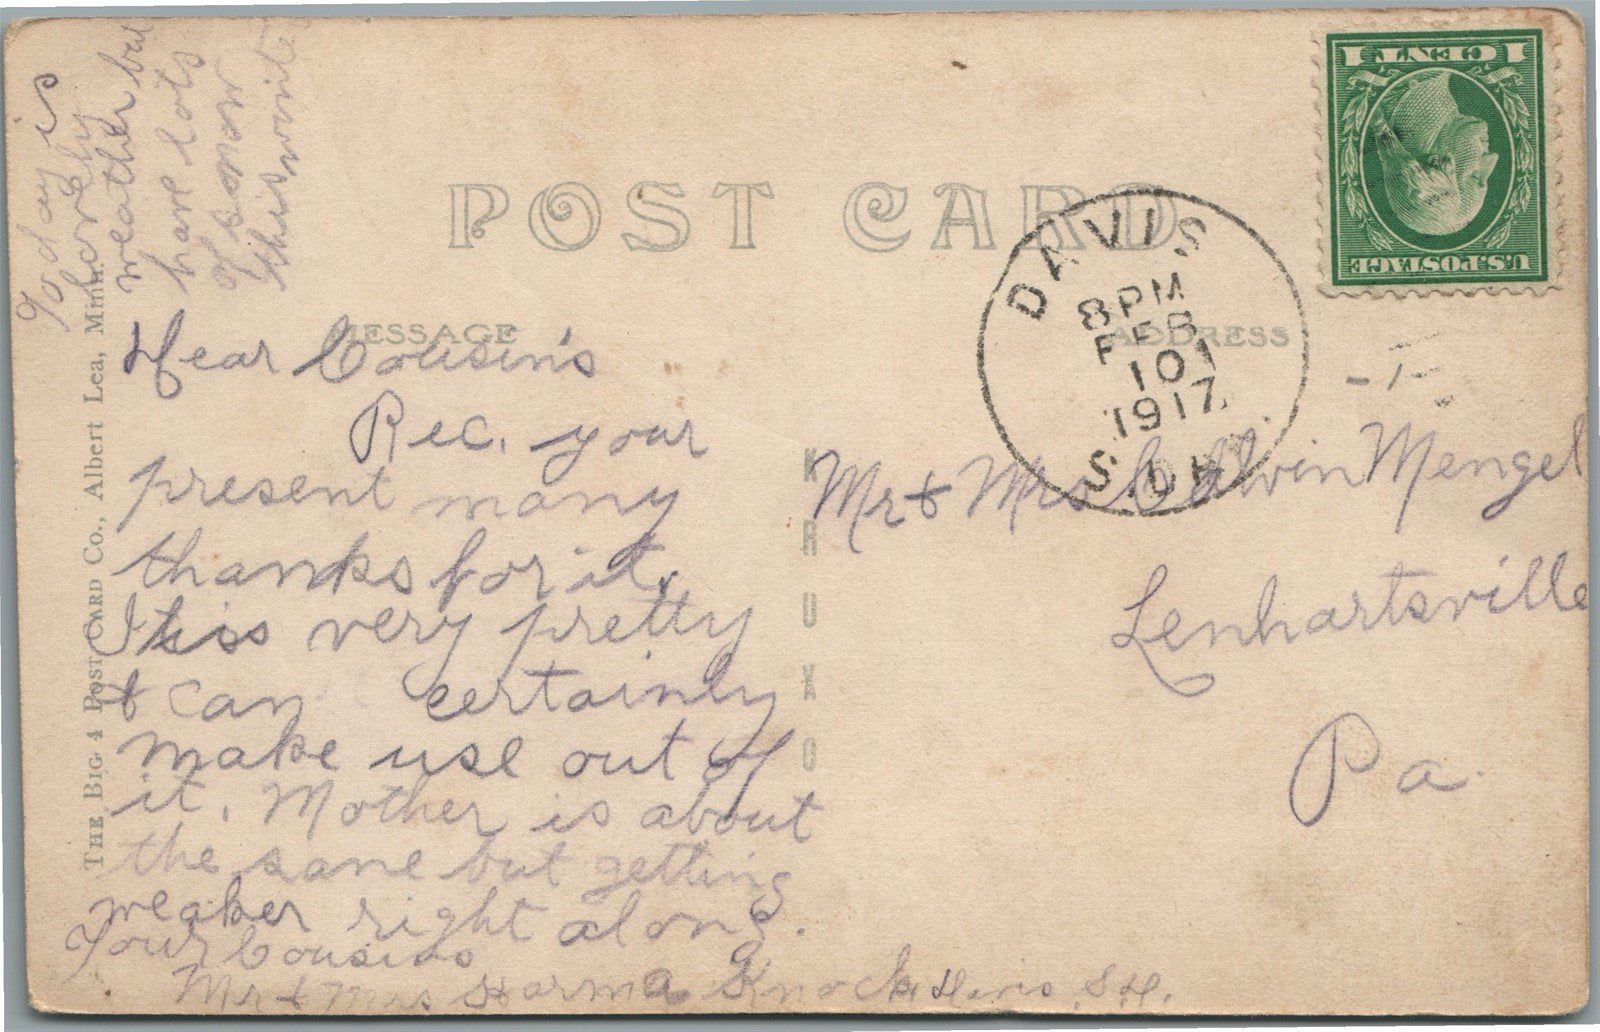 Today is
lovely
weather but
have lots
of snow
this winter
POST CARD
MESSAGE
ADDRESS
1 CENT 1
U.S. POSTAGE
DAVIS
8 PM
FEB
10
1917
S. DAK.
Dear Cousin's
Rec. your
present many
thanks for it.
It is very pretty
& can certainly
make use out of
it. Mother is about
the same but getting
weaker right along.
Your Cousins
Mr & Mrs Knock Davis, S.D.
Mr & Mrs Edwin Mengel
Lenhartsville
Pa.
KRUXO
THE BIG 4 POST CARD CO., Albert Lea, Minn.